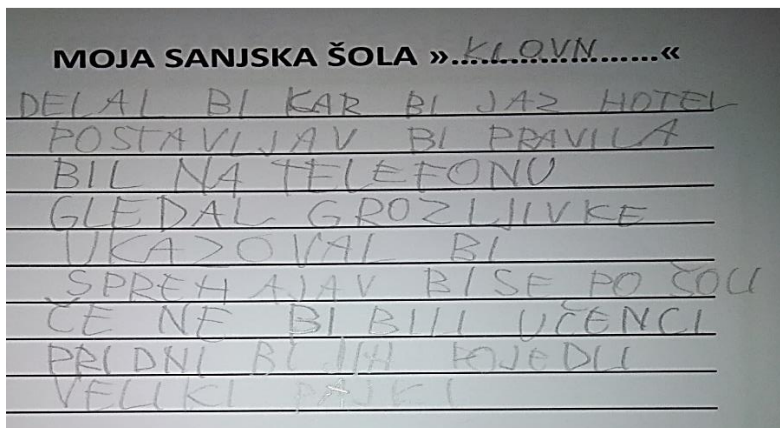 MOJA SANJSKA ŠOLA »KLOVN«
DELAL BI KAR BI JAZ HOTEL
POSTAVLJAV BI PRAVILA
BIL NA TELEFONU
GLEDAL GROZLJIVKE
UKAZOVAL BI
SPREHAJAV BI SE PO ŠOLI
ČE NE BI BILI UČENCI
PRIDNI BI JIH POJEDLI
VELIKI PAJKI